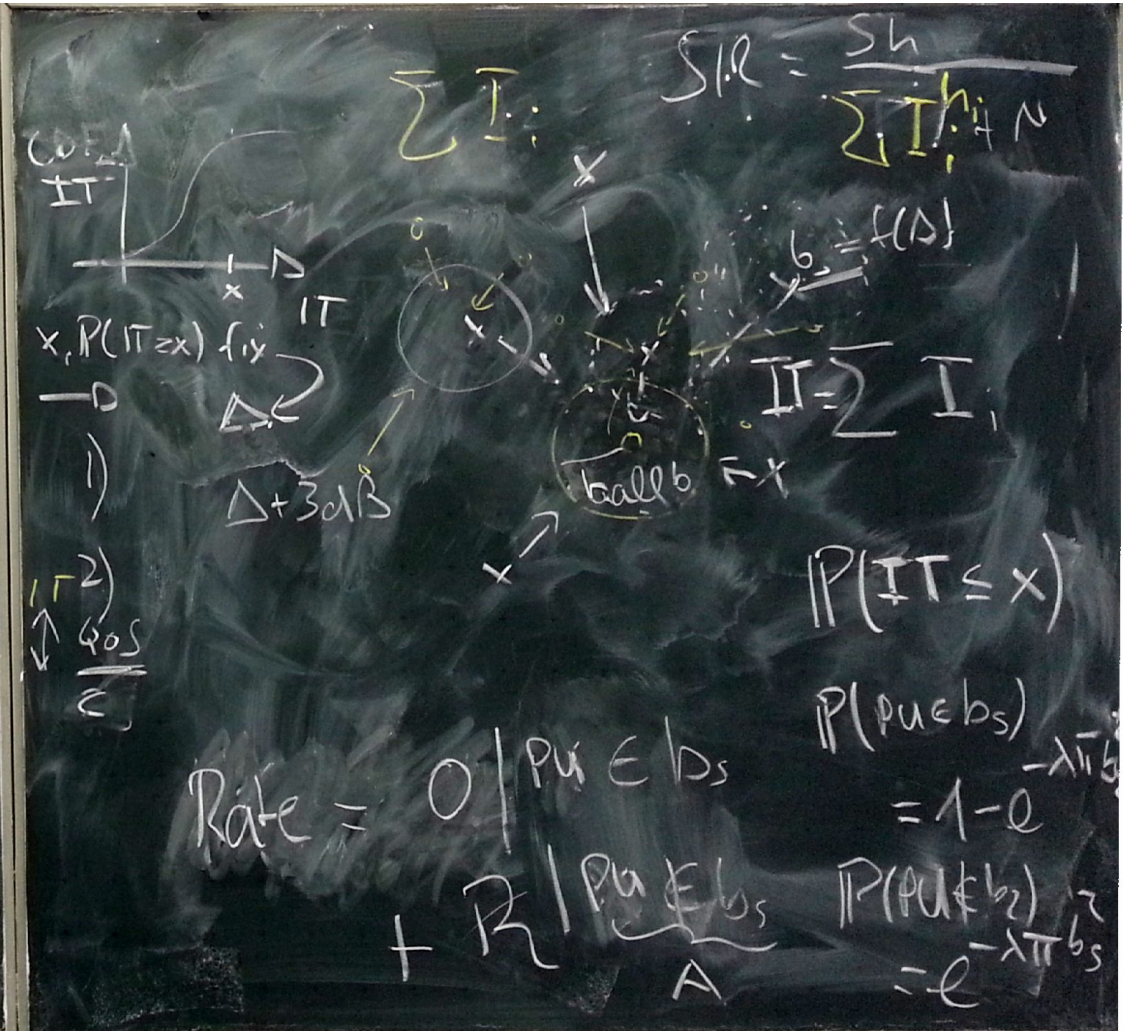 SIR = Sh / (∑ I_i h_i + N)
∑ I_i
CDF
IT
Δ
x
IT
x, P(IT=x) fix
Δ
1)
Δ+3dB
2)
IT
QoS
x
b_s = f(Δ)
IT=∑ I_i
ball b
x
x
P(IT ≤ x)
P(PU∈b_s)
= 1-e^{-λπb
Rate = 0 | PU ∈ b_s
+ R | PU ∉ b_s
A
P(PU∉b_s)
= e^{-λπb_s^2}